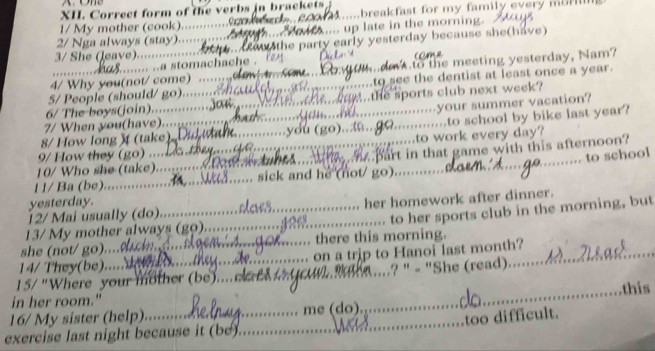 XII. Correct form of the verbs in brackets
1/ My mother (cook)..........cooks.....breakfast for my family every morning
2/ Nga always (stay)..........up late in the morning. stays
3/ She (leave)..........leaves the party early yesterday because she(have)
..........has..........a stomachache.
4/ Why you(not/ come) ..........Do you...don't to the meeting yesterday, Nam? come
5/ People (should/ go)..........should go..........to see the dentist at least once a year.
6/ The boys(join)..........the sports club next week?
7/ When you(have)..........your summer vacation?
8/ How long it (take)..........take..........you (go)..to..go..........to school by bike last year?
9/ How they (go) ..........Do they...go..........to work every day?
10/ Who she (take)..........takes..........part in that game with this afternoon?
11/ Ba (be)..........was..........sick and he (not/ go)..........doesn't...go..........to school
yesterday.
12/ Mai usually (do)..........does..........her homework after dinner.
13/ My mother always (go)..........goes..........to her sports club in the morning, but
she (not/ go)..........doesn't...go..........there this morning.
14/ They(be)..........they..........on a trip to Hanoi last month?
15/ "Where your mother (be)..........your..........? " - "She (read)..........is..read..........
in her room."
16/ My sister (help)..........helping..........me (do)..........do..........this
exercise last night because it (be)..........was..........too difficult.